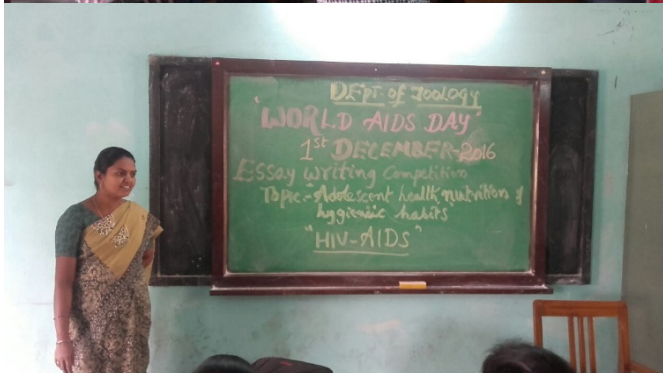 DEpt. of Zoology
"WORLD AIDS DAY"
1st DECEMBER-2016
Essay writing Competition
Topic:- Adolescent health, nutrition &
hygienic habits
"HIV-AIDS"